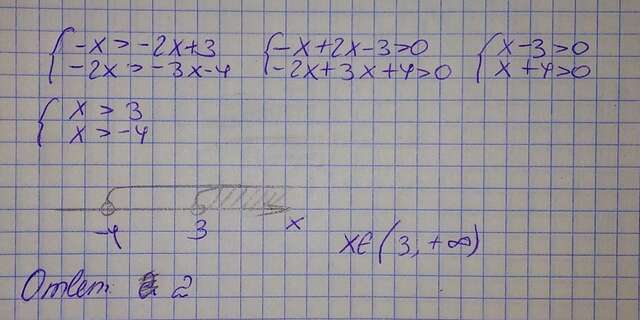 { -x > -2x+3 { -x+2x-3>0 { x-3>0
{ -2x > -3x-4 { -2x+3x+4>0 { x+4>0
{ x > 3
{ x > -4
-4 3 x
x∈(3,+∞)
Ответ 2